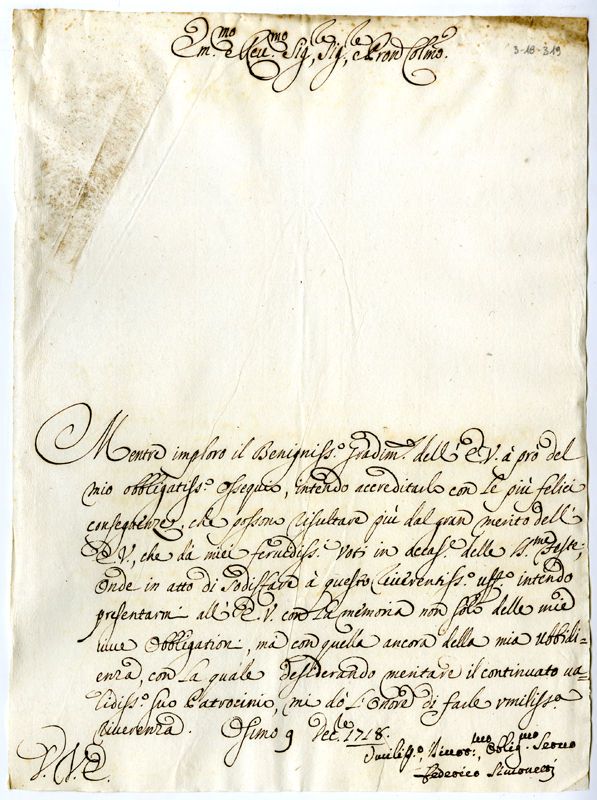 Em.mo e Reu.mo Sig.re Sig.re e Pron Colmo.
3-18-319
Mentre imploro il Benigniss.o Gradim.o dell'E.V. à prò del
mio obbligatiss.o ossequio, intendo accreditarlo con le più felici
conseguenze, che possono risultare più dal gran merito dell'
E.V., che dà miei feruidiss.i voti in occas.e delle S.me Feste;
Onde in atto di sodisfare à questo riuerentiss.o uff.o intendo
presentarmi all'E.V. con la memoria non solo delle mie
uiue obbligationi, mà con quella ancora della mia ubbidi=
enza, con la quale desiderando meritare il continuato ua=
lidiss.o suo Patrocinio, mi dò l'onore di farle vmiliss.a
riuerenza. Osimo 9 Dec.re 1718.
D.V.E.
Vmiliss.o, Diuot.mo, Oblig.mo Seruo
Federico